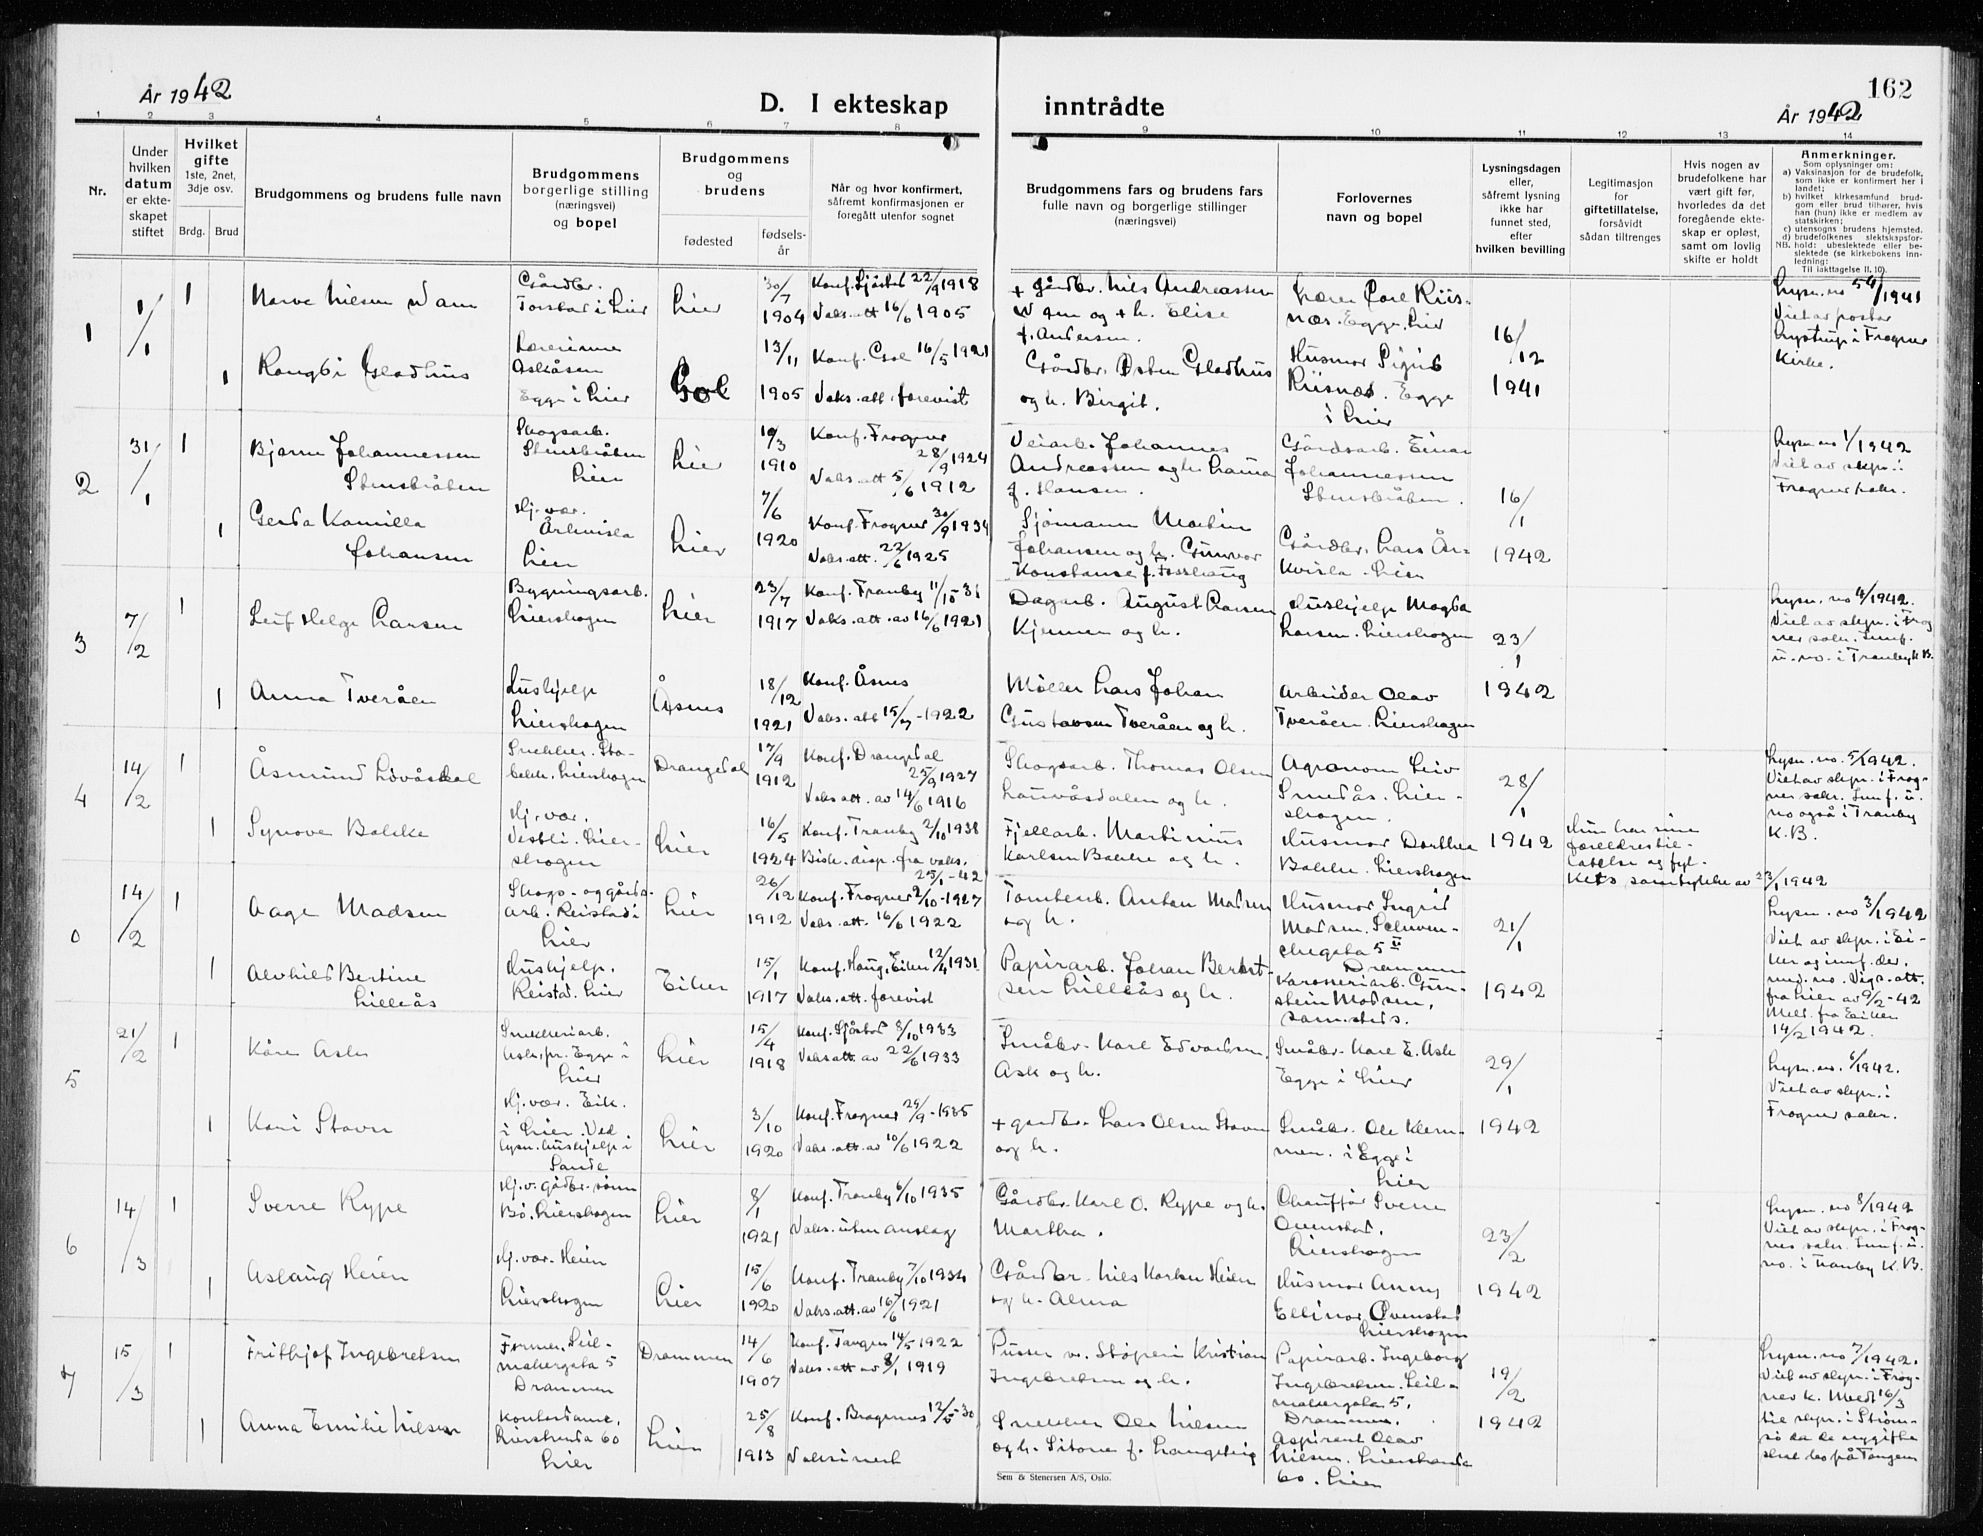 162
År 1942
D. I ekteskap inntrådte
År 1942
1 2 3 4 5 6 7 8 9 10 11 12 13 14
Nr.
Under
hvilken
datum
er ekte-
skapet
stiftet
Hvilket
gifte
1ste, 2net,
3dje osv.
Brdg. Brud
Brudgommens og brudens fulle navn
Brudgommens
borgerlige stilling
(næringsvei)
og bopel
Brudgommens
og
brudens
fødested
fødsels-
år
Når og hvor konfirmert,
såfremt konfirmasjonen er
foregått utenfor sognet
Brudgommens fars og brudens fars
fulle navn og borgerlige stillinger
(næringsvei)
Forlovernes
navn og bopel
Lysningsdagen
eller,
såfremt lysning
ikke har
funnet sted,
efter
hvilken bevilling
Legitimasjon
for
giftetillatelse,
forsåvidt
sådan tiltrenges
Hvis nogen av
brudefolkene har
vært gift før,
hvorledes da det
foregående ekte-
skap er opløst,
samt om lovlig
skifte er holdt
Anmerkninger.
Som oplysninger om:
a) Vaksinasjon for de brudefolk,
som ikke er konfirmert her i
landet;
b) hvilket kirkesamfund brud-
gom eller brud tilhører, hvis
han (hun) ikke er medlem av
statskirken;
c) utensogns brudens hjemsted.
d) brudefolkenes slektskapsfor-
NB. hold: ubeslektede eller be-
slektede (se kirkebokens inn-
ledning:
Til iakttagelse II, 10).
1
1/1
1
Gårdbr.
Torstad i Lier
Lier
30/7
1904
Konf. Sjåstad 22/9 1918
Vaks. att 16/6 1905
+ Gårdbr. Nils Andreassen
og + h. Elise
f. Andersen.
Lærer Carl Riis-
næs. Egge, Lier
16/12
1941
Lysn. no 54/1941
Viet av pastor
i Frogner
Kirke.
1
Rangdi Gladhus
Lærerinne
Egge i Lier
Gol
13/11
1905
Konf. Gol 16/5 1921
Vaks. att. forevist
Gårdbr. Gladhus
og h. Birgit.
Husmor Sigrid
Riisnæs. Egge
i Lier
2
31/1
1
Bjarne Johannessen
Stensbråten
Skogsarb.
Stensbråten
Lier
Lier
19/3
1910
Konf. Frogner
28/9 1924
Vaks. att 5/6 1912
Veiarb. Johannes
Andreassen og h.
f. Hansen.
Gårdsarb. Einar
Johannessen
Stensbråten.
16/1
1942
Lysn. no 1/1942
Viet av slpr. i
Frogner sakr.
1
Gerda Kamilla
Johansen
Hj. vær.
Årkvisla
Lier
Lier
7/6
1920
Konf. Frogner 30/9 1934
Vaks. att. 22/6 1925
Sjømann Martin
Johansen og h. Gunvor
Konstanse f. Fosshaug
Gårdbr. Lars År-
kvisla. Lier
3
7/2
1
Leif Helge Larsen
Bygningsarb.
Lierskogen
Lier
23/7
1917
Konf. Tranby 11/10-31
Vaks. att. av 16/6 1921
Dagarb. August Larsen
Kjenner og h.
Hushjelp Magda
Larsen. Lierskogen
23/1
1942
Lysn. no 4/1942.
Viet av slpr. i Frog
ner sakr. Innf.
u. no. i Tranby K.B.
1
Anna Tveråen
Hushjelp
Lierskogen
Åsnes
18/12
1921
Konf. Åsnes
Vaks. att 15/7-1922
Møller Lars Johan
Gustavsen Tveråen og h.
Arbeider Olav
Tveråen. Lierskogen
4
14/2
1
Åsmund Lovåsdal
Snekker. Sta-
bekk. Lierskogen
Drangedal
17/9
1912
Konf. Drangedal
25/9 1927
Vaks att. av 14/6 1916
Skogsarb. Thomas Olsen
Lauvåsdalen og h.
Agronom Leiv
Smedås. Lier-
skogen.
28/1
1942
Lysn. no. 5/1942.
Viet av slpr. i Frog-
ner sakr. Innf. u.
no også i Tranby
K.B.
1
Synøve Bakke
Hj. vær.
Vestli. Lier-
skogen
Lier
16/5
1924
Konf. Tranby 2/10 1938
Bisk. disp. fra vaks.
25/1-42
Fjellarb. Martinius
Karlsen Bakke og h.
Husmor Dorthea
Bakke. Lierskogen
Hun har sine
foreldres til-
latelse og fyl-
kets samtykke av 23/1 1942
0
14/2
1
Aage Madsen
Skogs- og gårds-
arb. Reistad i
Lier
Lier
26/12
1912
Konf. Frogner 2/10-1927
Vaks. att. 16/6 1922
Tomtearb. Anton Madsen
og h.
Husmor Ingrid
Madsen.
5 II
Drammen
21/1
1942
Lysn. no 3/1942
Viet av slpr. i Ei-
ker og innf. der.
Vigs. att.
fra Lier av 9/2-42
Meld. fra Eiker
14/2 1942.
1
Alvhild Bertine
Lilleås
Hushjelp.
Reistad. Lier
Eiker
15/1
1917
Konf. Haug, Eiker 12/4 1931
Vaks. att. forevist
Papirarb. Johan Bernt-
sen Lilleås og h.
Karosseriarb. Gun-
stein Madsen,
samsteds.
5
21/2
1
Kåre Ask
Snekkeriarb.
Ask, pr. Egge i
Lier
Lier
15/4
1918
Konf. Sjåstad 8/10 1933
Vaks att. av 22/6 1933
Småbr. Karl Edvardsen
Ask og h.
Småbr. Karl E. Ask
Egge i Lier
29/1
1942
Lysn. no. 6/1942.
Viet av slpr. i
Frogner sakr.
1
Kari Stavn
Hj. vær. Eik.
i Lier. Ved
lysn. hushjelp i
Sande
Lier
3/10
1920
Konf. Frogner 29/9-1935
Vaks. att. av 10/6 1922
+ gardbr. Lars Olsen Stavn
og h.
Småbr. Ole Klem-
men. i Egge i
Lier
6
14/3
1
Sverre Rype
Hj. v. gårdbr. sønn
Bø. Lierskogen
Lier
8/1
1921
Konf. Tranby 6/10 1935
Vaks. uten anslag
Gårdbr. Karl O. Rype og h.
Martha.
Chauffør Sverre
Ovenstad.
Lierskogen
23/2
1942
Lysn. no 8/1942
Viet av slpr. i Frog-
ner sakr. Innf. u.
no. i Tranby K.B.
1
Aslaug Heien
Hj. vær. Heien
Lierskogen
Lier
15/6
1920
Konf. Tranby 7/10 1934
Vaks. att. av 16/6 1921
Gårdbr. Nils Karlsen Heien
og h. Alma
Husmor Anny
Ellinor Ovenstad
Lierskogen
7
15/3
1
Frithjof Ingebretsen
Former. Seil-
makergata 5
Drammen
Drammen
14/6
1907
Konf. Tangen 14/5 1922
Vaks. att av 8/1 1919
Pusser v. Støperi Kristian
Ingebretsen og h.
Papirarb. Ingeborg
Ingebretsen. Seil-
makergata 5.
Drammen.
19/2
1942
Lysn. no 7/1942.
Viet av slpr. i Frog-
ner k. Meldt 16/3
til slpr. i Strøm-
sø da de nygifte
skal bo på Tangen
1
Anna Emilie Nilsen
Kontordame.
Lierstranda 60
Lier
Lier
25/8
1913
Konf. Bragernes 12/5-30
Vaksinert
Snekker Ole Nilsen
og h. Sitona f.
Aspirant Olav
Nilsen. Lierstranda
60. Lier
Sem & Stenersen A/S, Oslo.